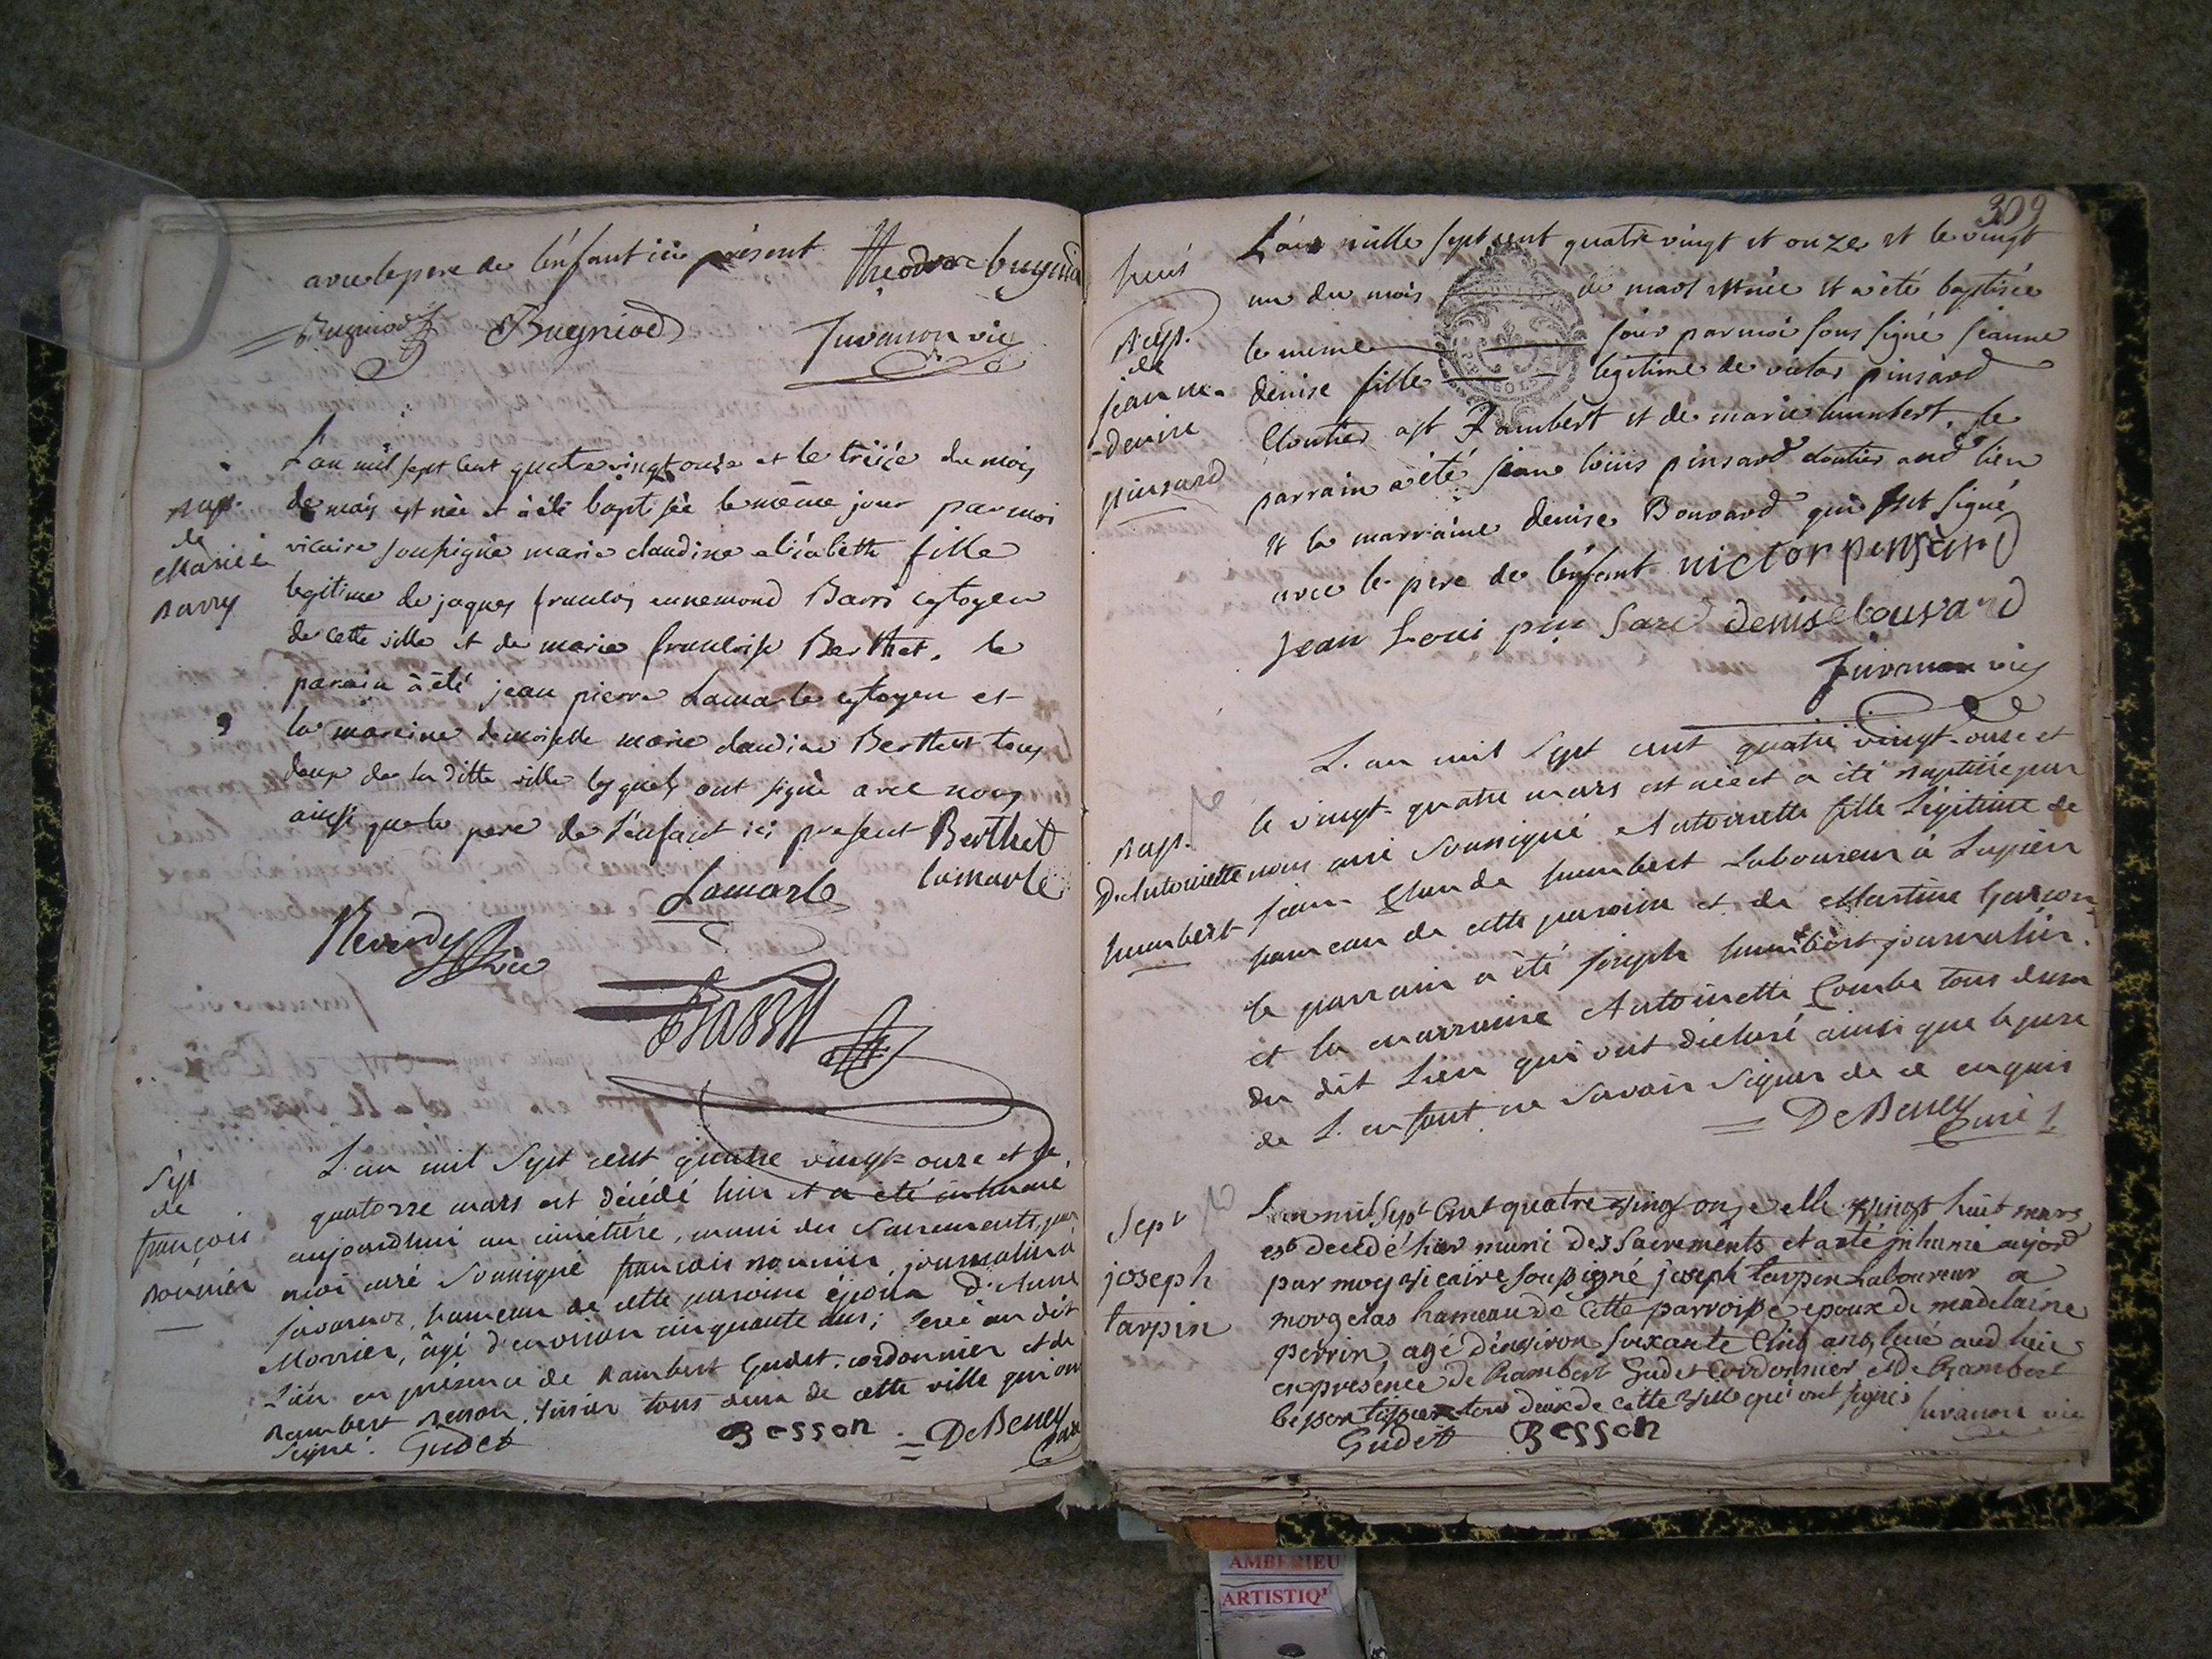 avec le pere de l'enfant ici présent Theodore bugniod
Bugniod Bugniod Juvanon vic
L'an mil sept cent quatre vingt onze et le treize du mois
de mars est née et à été baptisée le même jour par moi
vicaire soussigné marie claudine elisabeth fille
legitime de jaques francois ennemond Barri cytoyen
de cette ville et de marie francoise Berthet. le
parain à été jean pierre Lamarle cytoyen et
la mareine demoiselle marie claudine Berthet tous
deux de la ditte ville lesquels ont signé avec nous
ainsi que le pere de l'enfant ici present Berthet
Lamarle lamarle
vic
Bap.
de
Marie
Barry
L'an mil Sept cent quatre vingt-onze et le
quatorze mars est décédé hier et a été inhumé
aujourdhui au cimétière, muni des Sacrements, par
moi curé Soussigné françois Bounier, journalier à
hameau de cette paroisse époux D'Anne
Monier, âgé d'environ cinquante ans; levé au dit
Lieu en présence de Rambert Gudet, cordonnier et de
Rambert Besson, tissier tous deux de cette ville qui ont
Signé. Gudet Besson DeBeney Curé
Sep
de
françois
Bounier
309
L'an mille sept cent quatre vingt et onze et le vingt
un du mois de mars est née et a été baptisée
le meme jour par moi sous signé jeanne
denise fille légitime de victor pinsard
Cloutier a st Rambert et de marie humbert. le
parrain a été jean louis pinsard cloutier aud lieu
et la marraine denise Bouvard qui ont signé
avec le pere de l'enfant victor pensard
jean Loui pin Sard denise bouvard
Juvanon vic
Bap.
de
jeanne
-denise
pinsard
L'an mil Sept cent quatre vingt-onze et
le vingt-quatre mars est née et a été Baptisée par
nous curé Soussigné Antoinette fille Légitime de
jean Claude humbert Laboureur à Lupieu
hameau de cette paroisse et de Martine Garçon,
le parrain a été joseph humbert journalier.
et la marraine Antoinette Combe tous deux
du dit Lieu qui ont déclaré ainsi que le pere
de L'enfant ne Savoir Signer de ce enquis
DeBeney Curé
Bap.
De Antoinette
humbert
L'an mil Sept Cent quatre vingt onze et le vingt huit mars
est decedé hier muni des Sacrements et a eté inhumé aujord
par moy vicaire soussigné joseph tarpin Laboureur a
morgelas hameau de Cette parroisse epoux de madelaine
perrin, agé d'environ soixante Cinq ans, levé aud lieu
en presence de Rambert Gudet Cordonnier et de Rambert
besson tissier tous deux de cette ville qui ont signés Juvanon vic
Gudet Besson
Sepr
joseph
tarpin
AMBERIEU
ARTISTIQ'